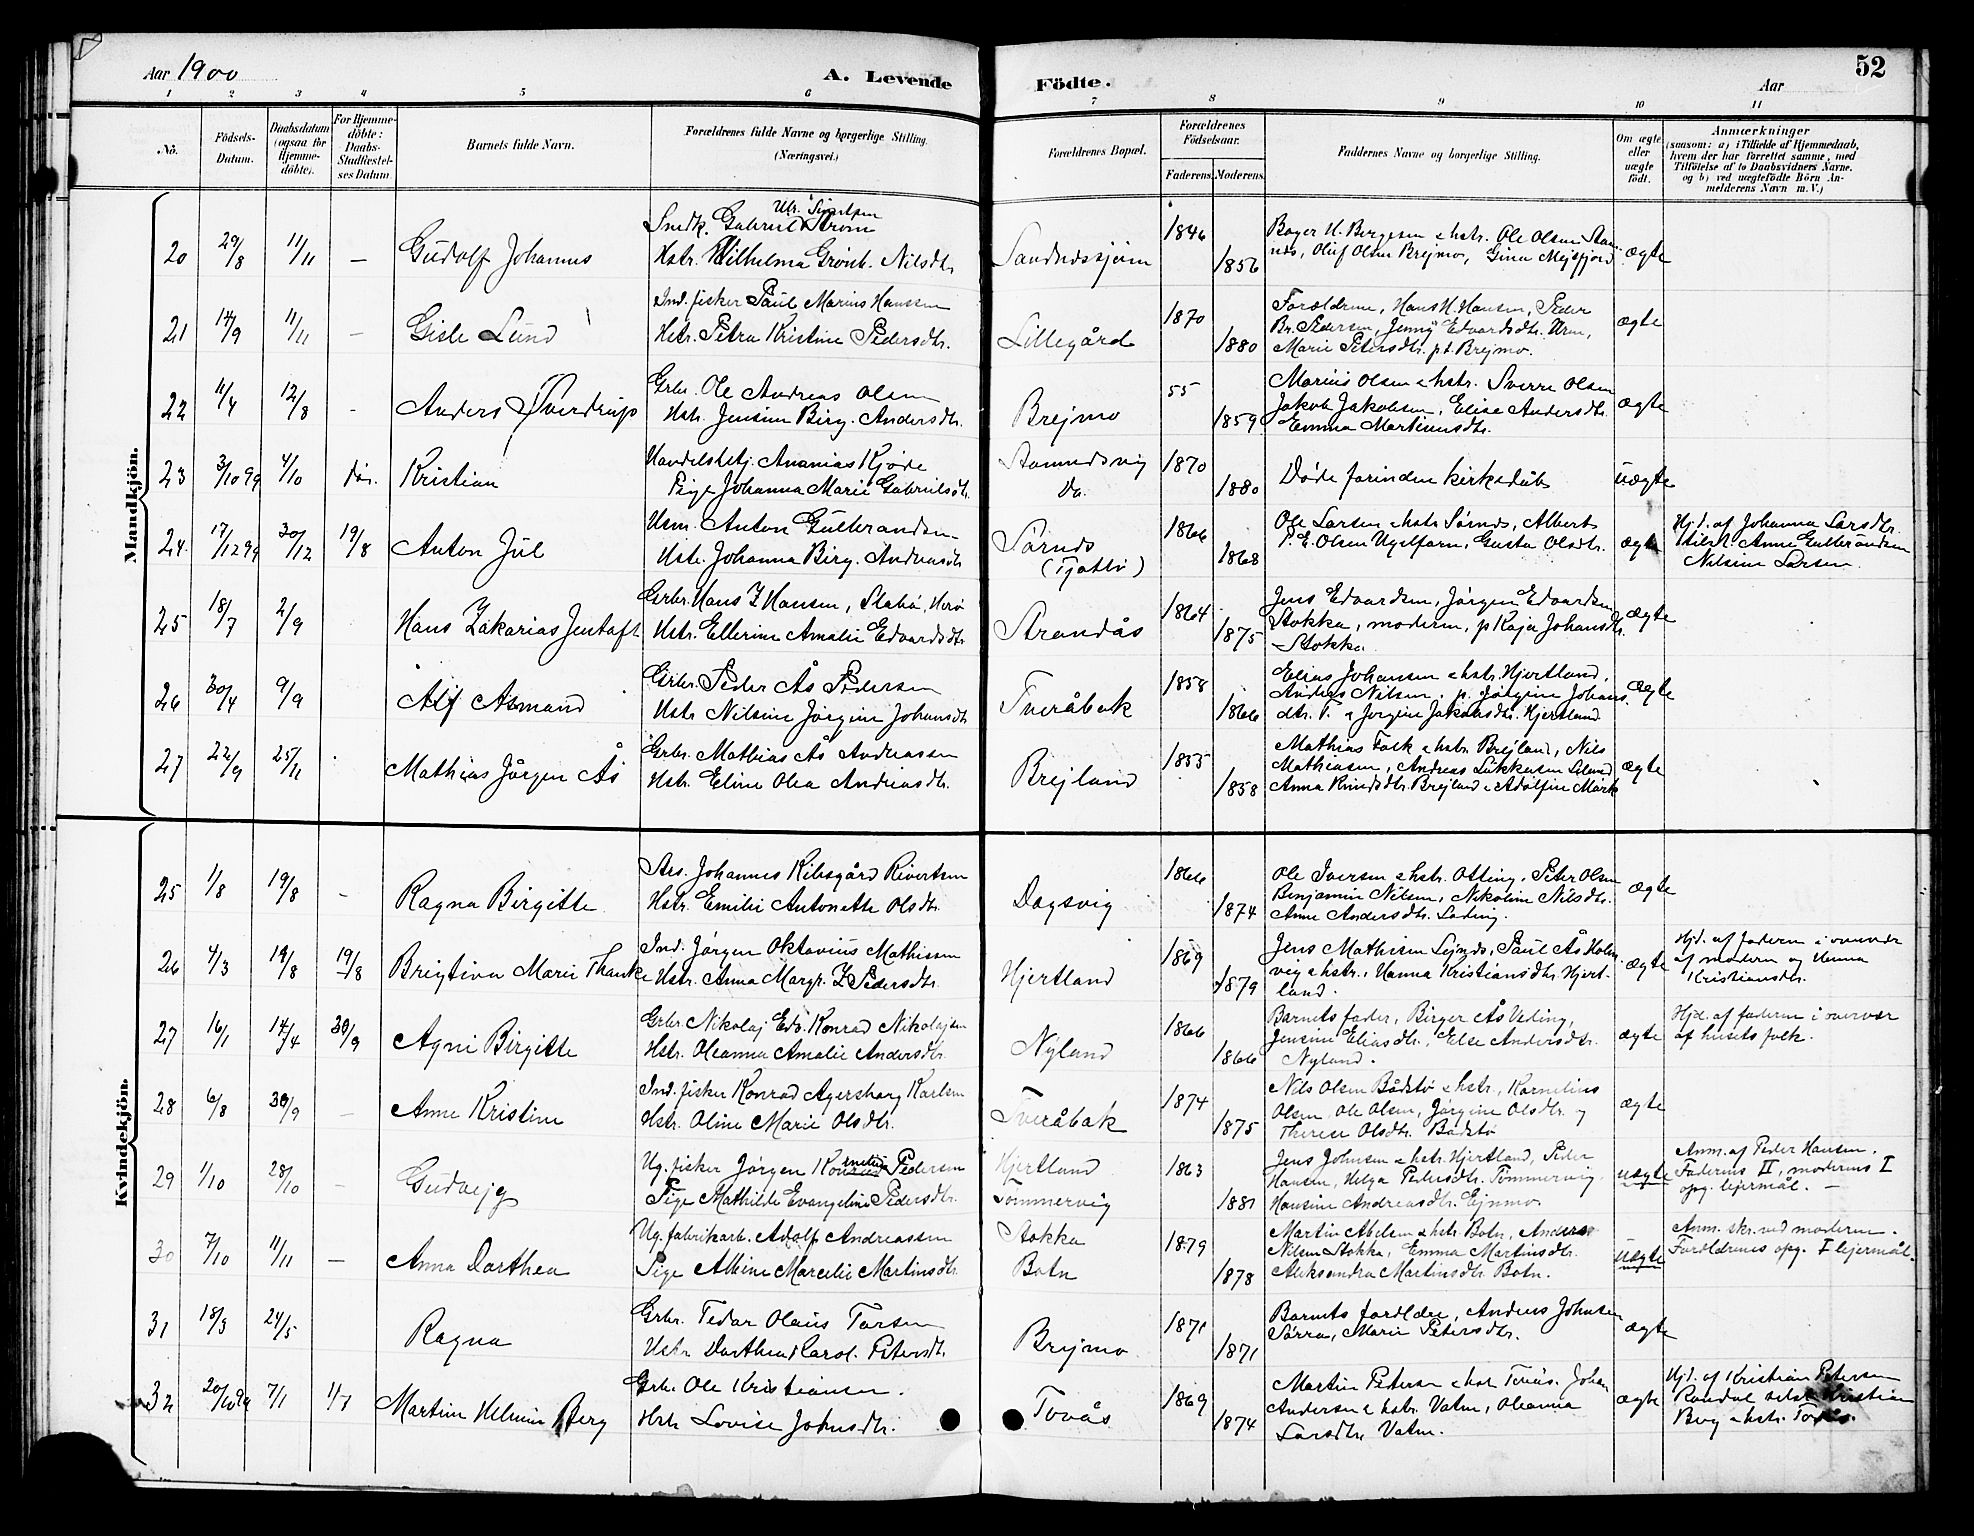 Aar 1900
A. Levende
Födte.
Aar
52
1 2 3 4 5 6 7 8 9 10 11
No.
Födsels-Datum.
Daabsdatum (ogsaa for Hjemme-döbte).
For Hjemme-döbte: Daabs-Stadfæstel-ses Datum.
Barnets fulde Navn.
Forældrenes fulde Navne og borgerlige Stilling. (Næringsvei.)
Forældrenes Bopæl.
Forældrenes Födselsaar.
Faderens. Moderens.
Faddernes Navne og borgerlige Stilling.
Om ægte eller uægte födt.
Anmærkninger
(saasom: a) i Tilfælde af Hjemmedaab, hvem der har forrettet samme, med Tilföielse af to Daabsvidners Navne. og b) ved uægtefödte Börn An-melderens Navn m. V.)
Mandkjön.
20 29/8 11/11 — Gudolf Johannes
Snedk. Gabriel Strøm
Hstr. Vilhelmina Grönb. Nilsdtr.
1846
1856
ægte
21 14/9 11/11 — Gisle Lund
Ind. fisker Paul Marius Hanssen
Hstr. Petra Kristine Pedersdtr.
Lillegård
1870
1880
Forældrene, Hans H. Hansen, Peder
Br. Pedersen, Jenny Edvardsdtr.
Marie Petersdtr. pt. Brejmo.
ægte
22 11/4 12/8 - Anders Överdrup
Grbr. Ole Andreas Olsen
Hstr. Jensine Birg. Andersdtr.
Brejmo
55
1859
Marius Olsen & hstr. Sverre Olsen
Jakob Jakobsen, Elise Andersdtr.
Emma Martinusdtr.
ægte
23 3/10 99 4/10 Kristian
Handelsbetj. Ananias Kjøde
Pige Johanna Marie Gabrielsdtr.
Do.
1870
1880
Døde forinden kirkedåb
uægte
24. 17/12 99 30/12 19/8 Anton Jul
Usm. Anton Gulbrandsen
Hstr. Johanna Birg. Andreasdtr.
Sørnes
(Tjøttø)
1866
1868
Ole Larsen & hstr Sørnes, Albert
P. E. Olsen Ugelfarn, Gusta Olsdtr.
ægte
Hjd. af Johanna Larsdtr.
tilst. Anne Gulbrandsen
Nilsine Larsen
25 18/7 2/9 Hans Zakarias Jentoft
Grbr. Hans Z Hansen, Slabø, Herø
Hstr. Ellerine Amalie Edvardsdtr.
Strandås
1864
1875
Jens Edvardsen, Jørgen Edvardsen
Stokka, moderen, p Kaja Johansdtr.
Stokka
ægte
26 30/4 9/9 Alf Asmund
Grbr. Peder Ås Pedersen
Hstr Nilsine Jørgine Johansdtr
Tveråbak
1858
1866
Elias Johansen & hstr. Hjertland,
Anders Nilsen, p. Jörgine Johans
dtr. T. & Jörgine Jakobsdtr. Hjertland
ægte
27 22/9 25/11 Mathias Jörgen Ås
Grbr. Mathias Ås Andreassen
Hstr. Eline Olea Andreasdtr.
Brejland
1855
1858
Mathias Falk & hstr. Brejland, Nils
Mathiasen, Andreas Lukkasen
Anna Knudsdtr. Brejland & Adolfine Mark
ægte
Kvindekjön.
25 1/8 19/8 — Ragna Birgitte
Ars. Johannes Kibsgård Rivertsen
Hstr. Emilie Antonette Olsdtr.
Dagsvig
1866
1874
Ole Iversen & hstr. Otting. Peter Olsen
Benjamin Nilsen, Nikoline Nilsdtr.
Anne Andersdtr.
ægte
26 4/3 19/8 19/8 Brigtiva Marie Thanke
Ind. Jörgen Oktavius Mathissen
Hstr. Anna Margr. Z Pedersdtr.
Hjertland
1869
1879
Jens Mathisen Lejnes, Paul Ås Holm
veg & hstr., Hanna Kristiansdtr. Hjert-
land.
ægte
Hjd. af faderen i overvær
af moderen og Hanna
Kristiansdtr.
27 16/1 14/4 30/9 Agni Birgitte
Grbr. Nikolaj Edv. Konrad Nikolajsen
Hstr. Oleanna Amalie Andersdtr.
Nyland
1866
1866
Barnets fader, Birger Ås Veding,
Jensine Eliasdtr., Else Andersdtr.
Nyland.
ægte
Hjd. af faderen i overvær
af husets folk.
28 6/8 30/9 — Anne Kristine
Ind. fisker Konrad Agersborg Karlsen
Hstr. Oline Marie Olsdtr.
Tveråbak
1874
1875
Nils Olsen Bådstø & hstr., Kornelius
Olsen, Ole Olsen, Jörgine Olsdtr. og
Therese Olsdtr. Bådstø
ægte
29 1/10 28/10 — Gudvejg
Ug. fisker Jörgen Pedersen
Pige Mathilde Evangeline Pedersdtr.
Hjertland
Tommervig
1863
1881
Jens Johnsen & hstr. Hjertland, Peder
Hansen, Helga Pedersdtr. Tömmervig,
Hansine Andreasdtr. Ejnmo.
uægte
Anm. af Peder Hansen.
Faderens II, moderens I
opg. lejermål. —
30 7/10 11/11 — Anna Dorthea
Ug. fabrikarb. Adolf Andreassen
Pige Albine Marcelie Martinsdtr.
Stokka
Botn
1879
1878
Martin Abelsen & hstr. Botn, Anders
Nilsen Stokka, Emma Martinsdtr.
Aleksandra Martinsdtr. Botn.
uægte
Anm. skr. ved moderen.
Forældrenes opg. I lejermål.
31 18/3 24/5 Ragna
Grbr. Peder Olaus Larsen
Hstr Dorthea Karol. Petersdtr
Brejmo
1871
1871
Barnets forældre, Anders Johnsen
Sørra, Marie Petersdtr.
ægte
32 20/10 99 7/1 1/7 Martine Helmine Berg
Grbr. Ole Kristiansen.
Hstr Lovise Johnsdtr.
Tovås
1869
1874
Martin Petersen & hstr Tovås. Johan
Andersen & hstr. Vatne, Oleanna
Larsdtr Vatne.
ægte
Hjd. af Kristian Petersen
Kristian
Berg & hstr. Tovås.